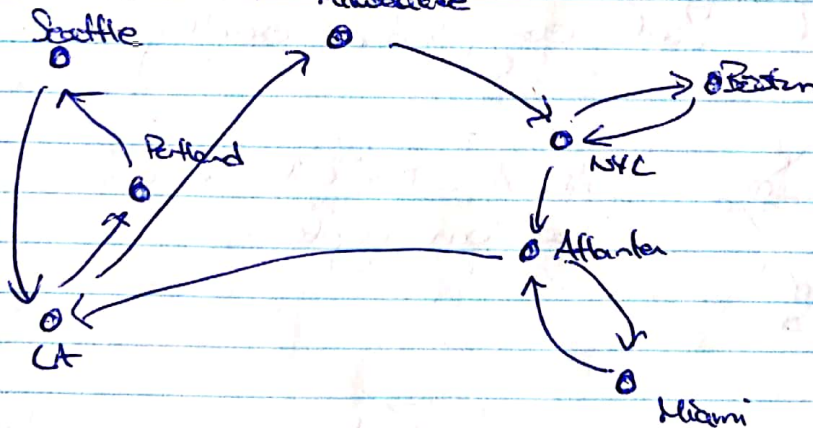 Seattle
Boston
Portland
NYC
Atlanta
LA
Miami